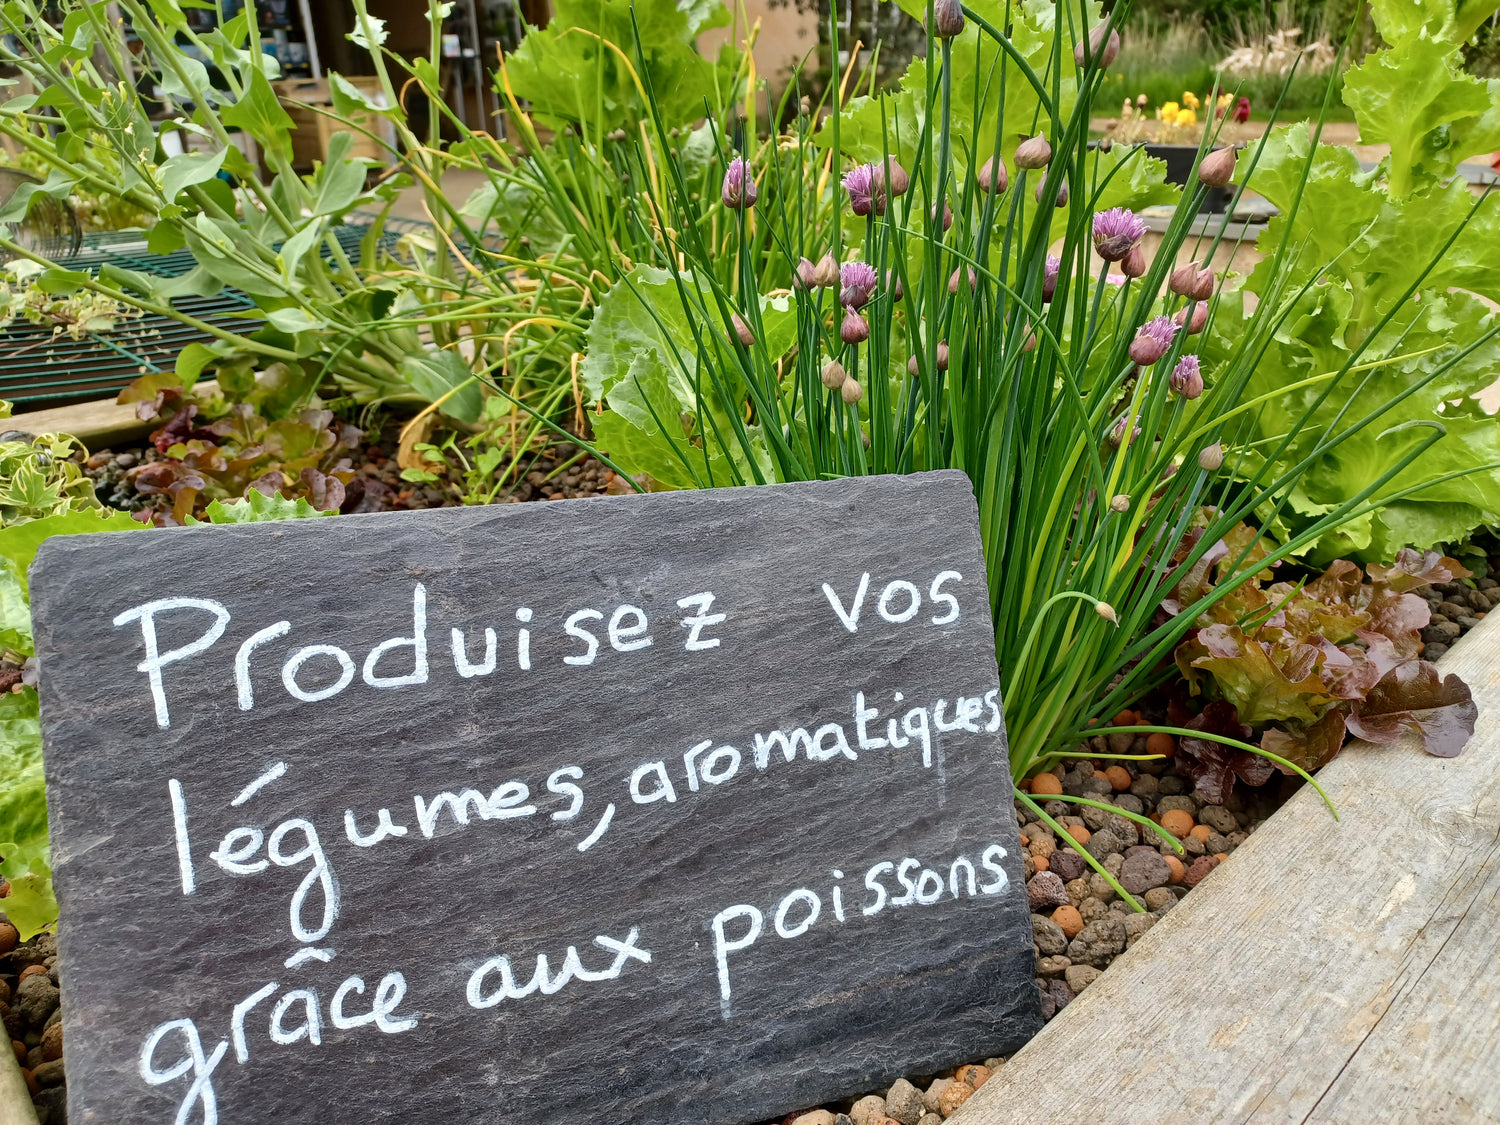 Produisez vos
légumes, aromatiques
grâce aux poissons